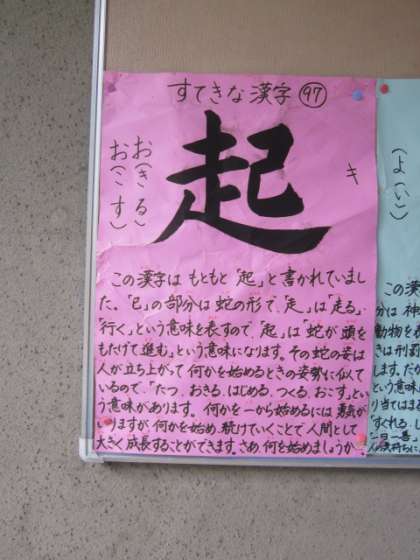 すてきな漢字 97
起
キ
お(きる)
お(こす)
この漢字は もともと「起」と書かれていまし
た。「巳」の部分は蛇の形で「走」は「走る」
「行く」という意味を表すので、「起」は「蛇が頭を
もたげて進む」という意味になります。その蛇の姿は
人が立ち上がって何かを始めるときの姿勢に似
ているので、「たつ、おきる、はじめる、つくる、おこす」とい
う意味があります。何かを一から始めるには 勇気が
いりますが、何かを始め、続けていくことで人間として
大きく成長することができます。さあ、何を始めましょうか
(よ(い)
この漢
分は神
動物を
きは刑罰
します。だか
という意味
り当てはまる
「すぐれる、し